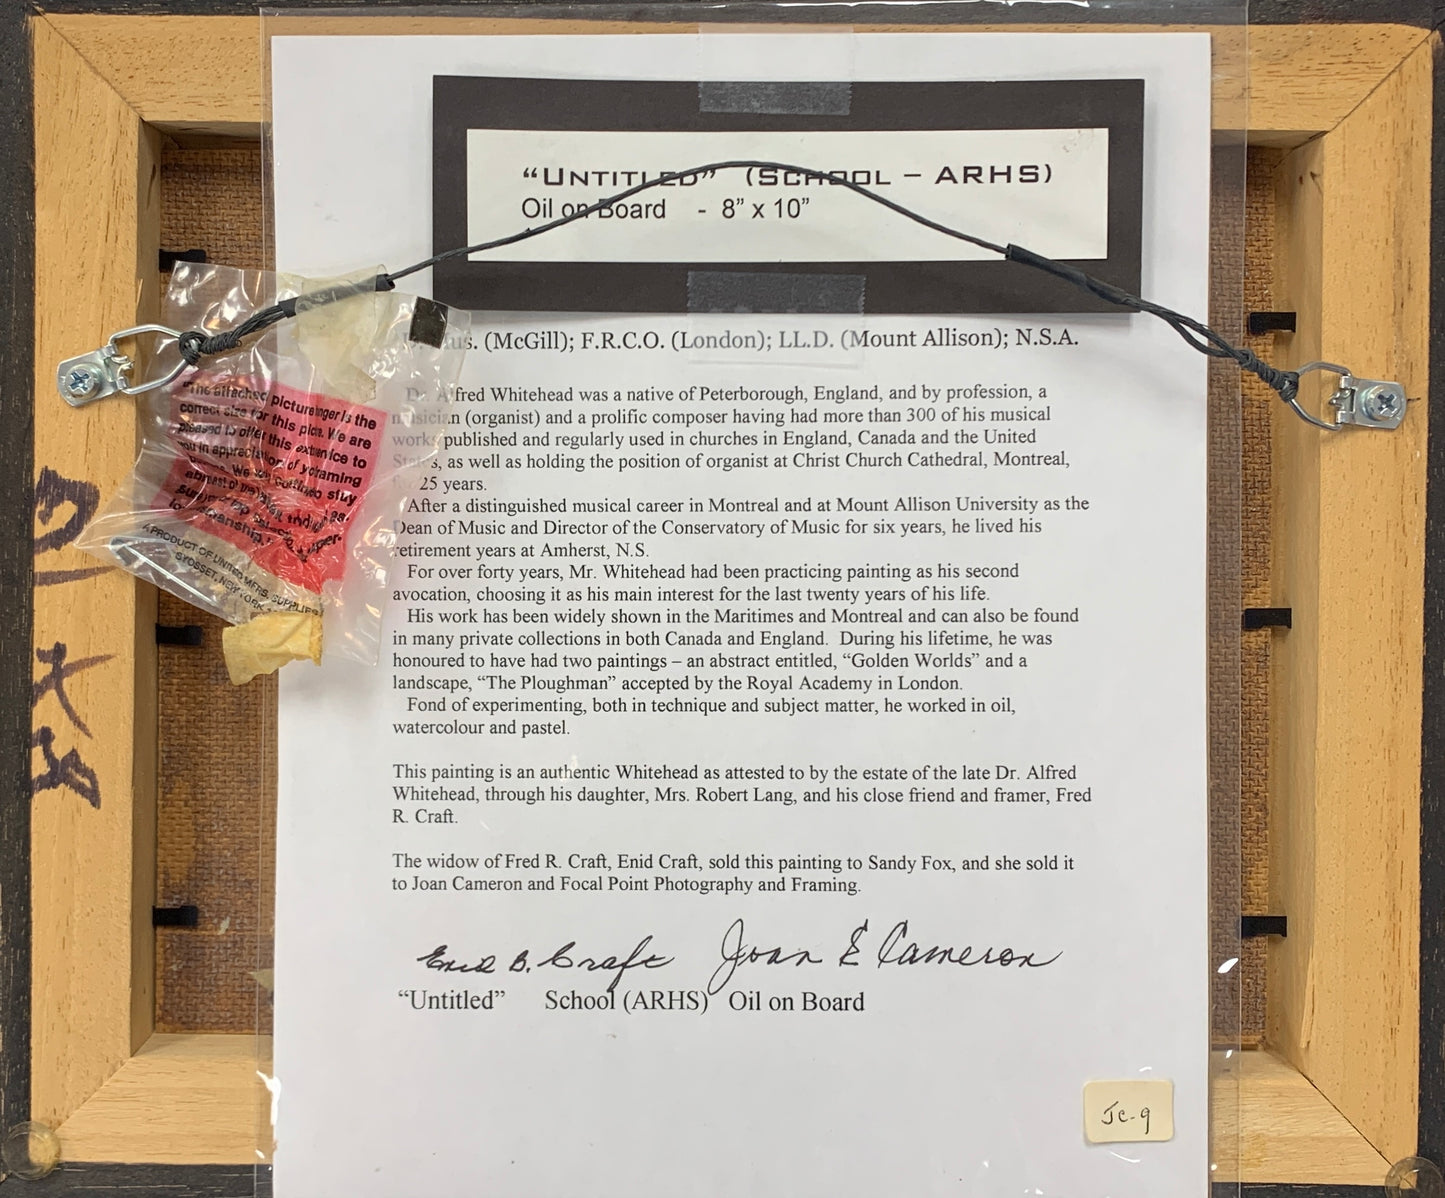 “UNTITLED” (SCHOOL – ARHS)
Oil on Board - 8” x 10”
us. (McGill); F.R.C.O. (London); LL.D. (Mount Allison); N.S.A.
Dr. Alfred Whitehead was a native of Peterborough, England, and by profession, a
musician (organist) and a prolific composer having had more than 300 of his musical
works published and regularly used in churches in England, Canada and the United
States, as well as holding the position of organist at Christ Church Cathedral, Montreal,
for 25 years.
After a distinguished musical career in Montreal and at Mount Allison University as the
Dean of Music and Director of the Conservatory of Music for six years, he lived his
retirement years at Amherst, N.S.
For over forty years, Mr. Whitehead had been practicing painting as his second
avocation, choosing it as his main interest for the last twenty years of his life.
His work has been widely shown in the Maritimes and Montreal and can also be found
in many private collections in both Canada and England. During his lifetime, he was
honoured to have had two paintings – an abstract entitled, “Golden Worlds” and a
landscape, “The Ploughman” accepted by the Royal Academy in London.
Fond of experimenting, both in technique and subject matter, he worked in oil,
watercolour and pastel.
This painting is an authentic Whitehead as attested to by the estate of the late Dr. Alfred
Whitehead, through his daughter, Mrs. Robert Lang, and his close friend and framer, Fred
R. Craft.
The widow of Fred R. Craft, Enid Craft, sold this painting to Sandy Fox, and she sold it
to Joan Cameron and Focal Point Photography and Framing.
Enid B. Craft Joan E Cameron
“Untitled” School (ARHS) Oil on Board
Jc-9
"The attached picture is the
correct size for this We are
pleased to offer this to
you in appreciation of your framing
We
A PRODUCT OF UNITED MFRS. SUPPLIES
SYOSSET, NEW YORK